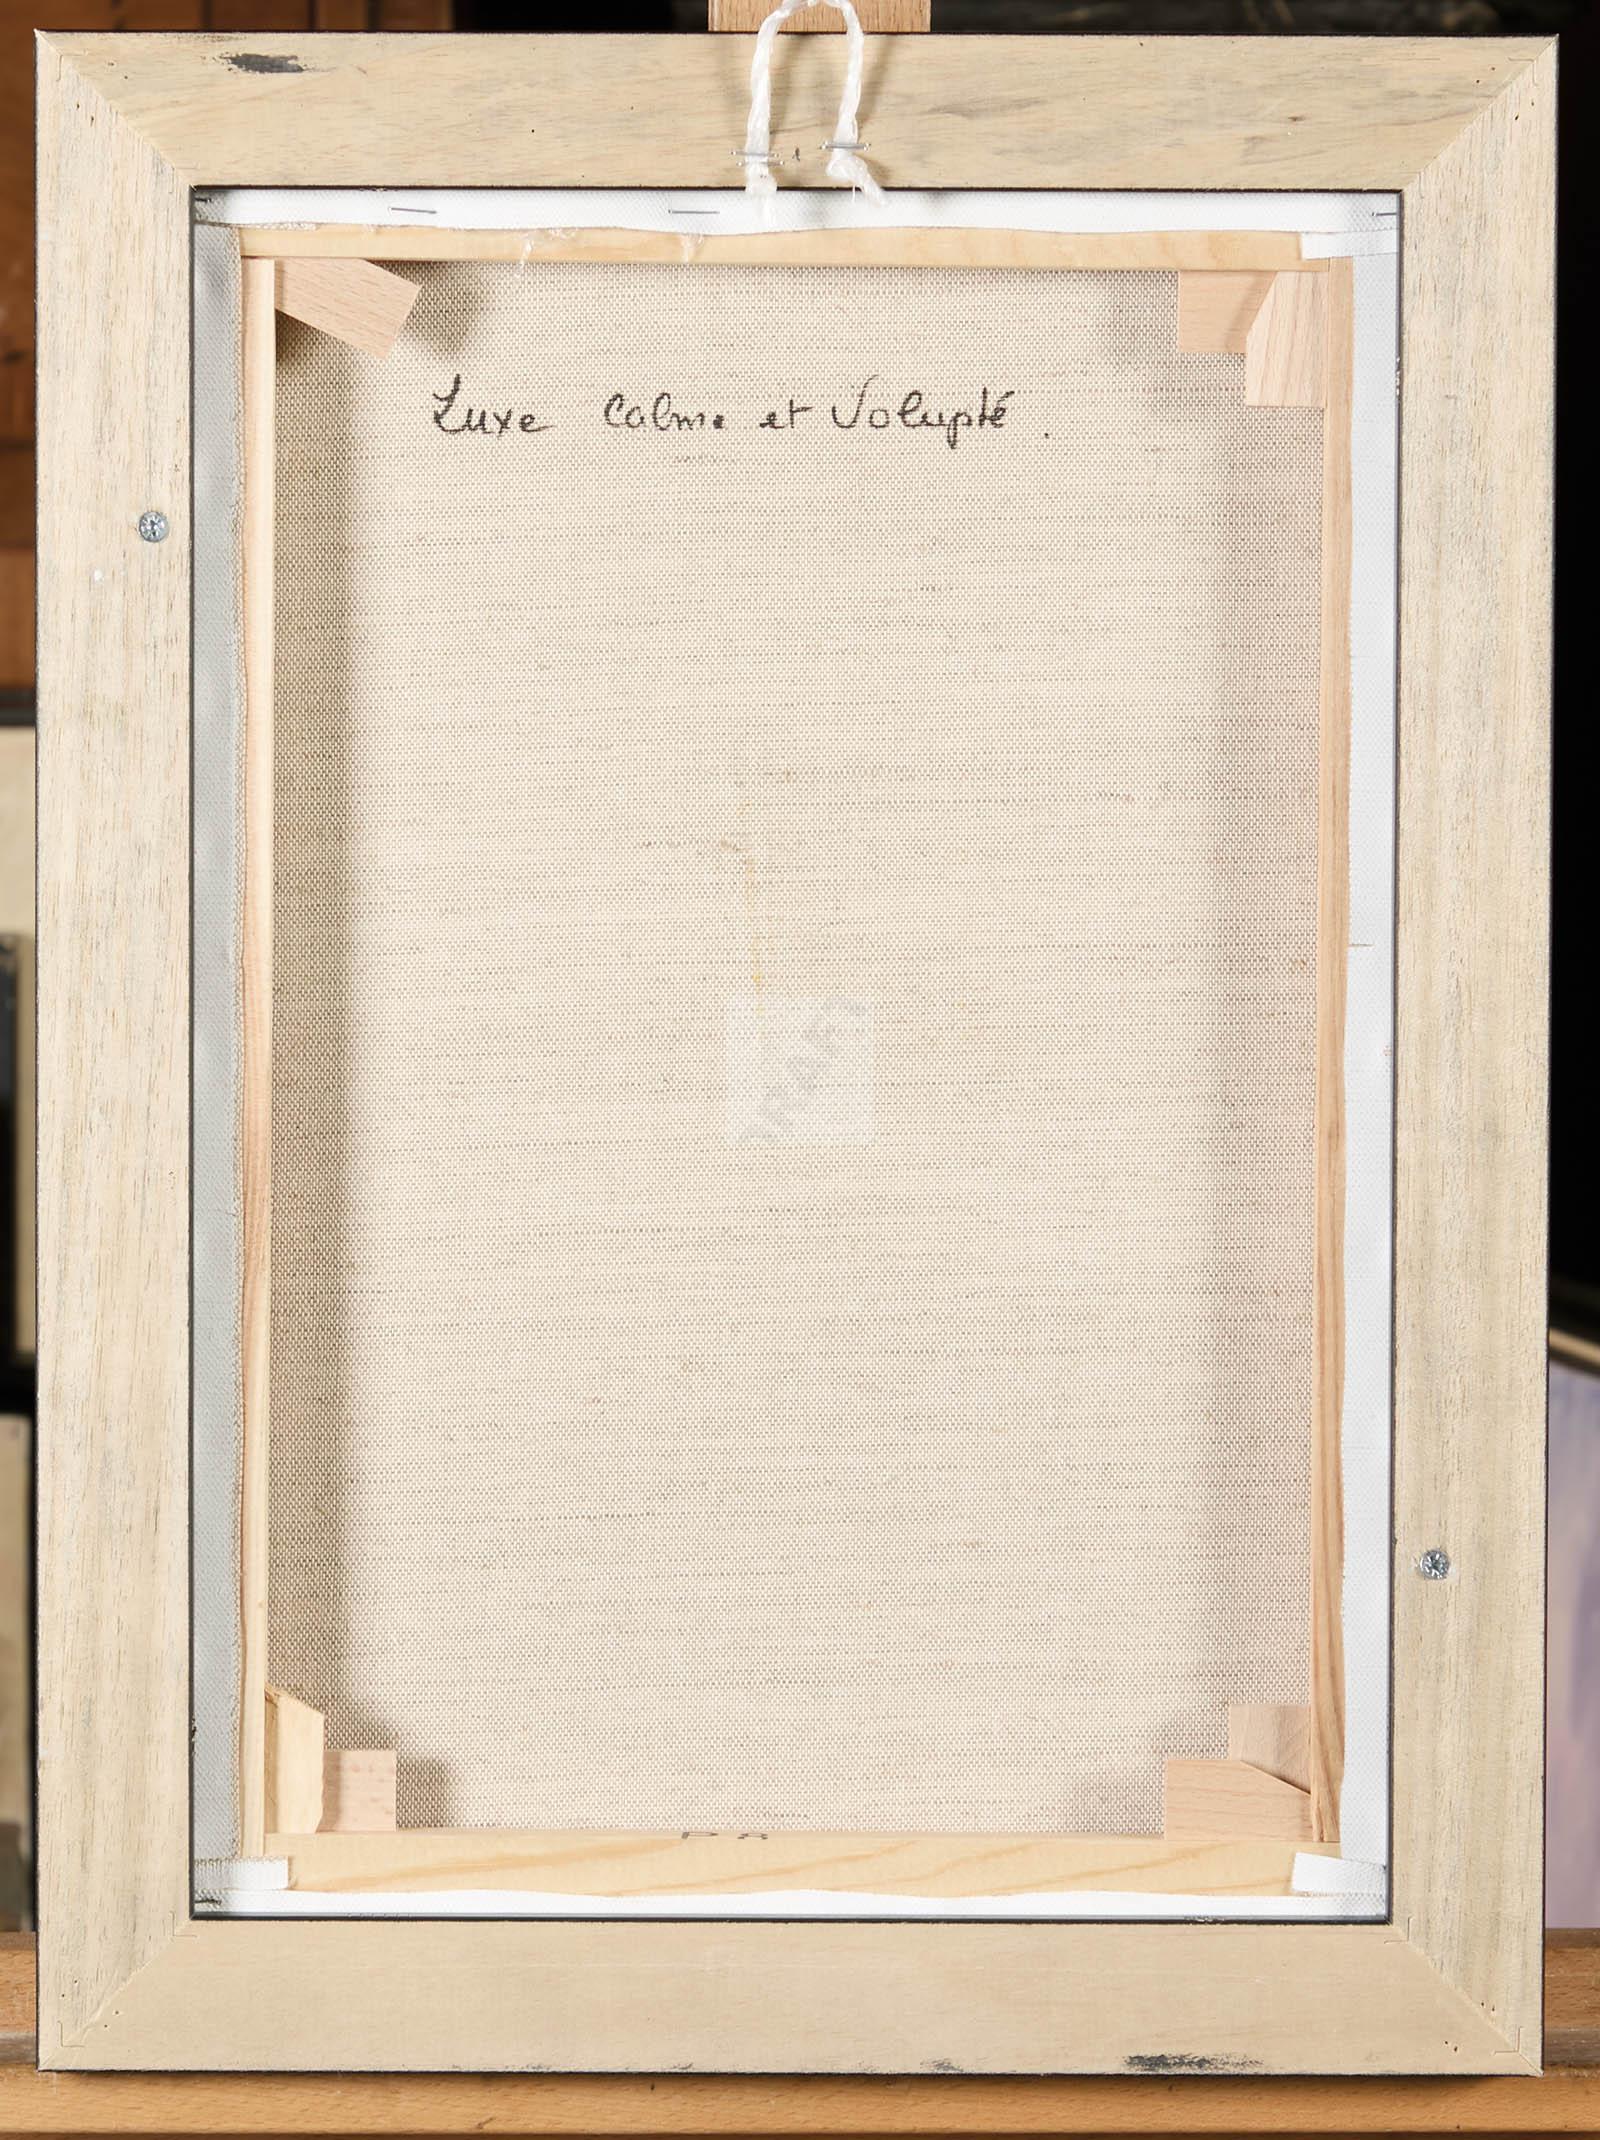 Luxe Calme et Volupté.
P 8